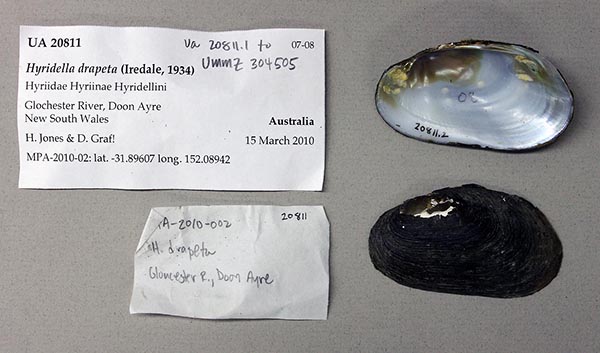 UA 20811
Ua 20811.1 to
UMMZ 304505
07-08
Hyridella drapeta (Iredale, 1934)
Hyriidae Hyriinae Hyridellini
Glochester River, Doon Ayre
New South Wales
Australia
H. Jones & D. Graf!
15 March 2010
MPA-2010-02: lat. -31.89607 long. 152.08942
20811.2
20811
A-2010-002
H. drapeta
Gloucester R., Doon Ayre